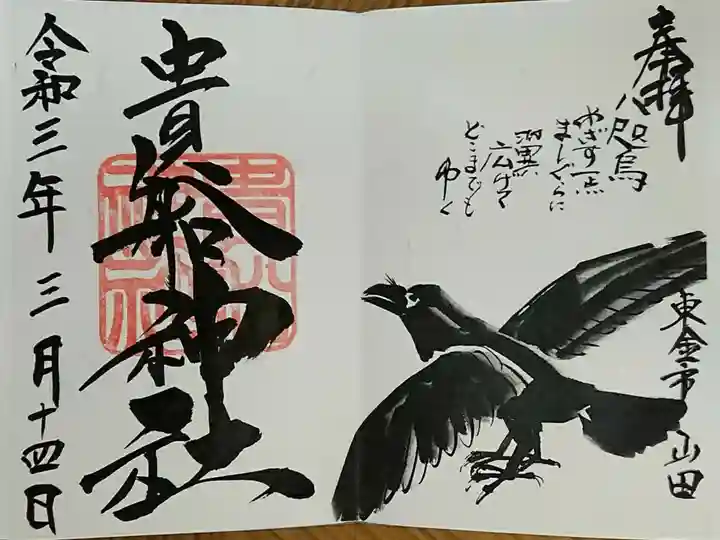 奉拝
八咫烏
めざす一点
ましぐらに
翼
広げて
どこまでも
ゆく
東金市山田
貴船神社
令和三年三月十四日